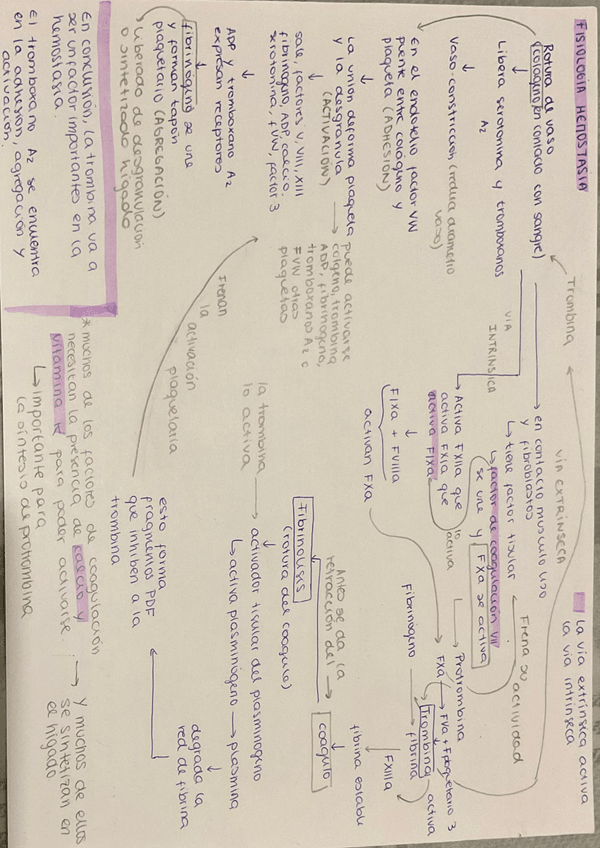 FISIOLOGÍA HEMOSTASIA
Rotura de vaso
(colágeno en contacto con sangre)
↓
Libera serotonina y tromboxanos
A2
↓
vaso-constricción (reduce diámetro
vaso)
↓
En el endotelio factor VW
puente entre colágeno y
plaqueta (ADHESIÓN)
↓
La unión deforma plaqueta
y la desgranula
(ACTIVACIÓN)
→ puede activarse
colágeno, trombina
ADP, fibrinógeno,
tromboxanos A2 c
FVW otras
plaquetas
↓
sale, factores V, VIII, XIII
fibrinógeno, ADP, calcio,
serotonina, FVW, factor 3
↓
ADP y tromboxano A2
expresan receptores
↓
fibrinógeno se une
y forman tapón
plaquetario (AGREGACIÓN)
→ Liberado de desgranulación
o sintetizado hígado
En conclusión, la trombina va a
ser un factor importantes en la
hemostasia.
El tromboxano A2 se encuentra
en la adhesión, agregación y
activación.
Trombina
VÍA
INTRÍNSECA
VÍA EXTRÍNSECA
la vía extrínseca activa
la vía intrínseca
→ en contacto musculo liso
y fibroblastos
↳ tiene factor tisular
Frena su actividad
↳ factor de coagulación VII
se une y FXa se activa
→ Activa FXIIa que
activa FXIa que
activa FIXa
lo
activa
↓
FIXa + FVIIIa
activan FXa
Protrombina
FXa (→ FVa + Fplaquetario 3
Trombina activa
Fibrinogeno → fibrina
FXIIIa
fibrina estable
↓
coagulo
Antes se da la
retracción del →
Fibrinolisis
(rotura del coagulo)
↓
la trombina
lo activa
→ activador tisular del plasminogeno
↳ activa plasminógeno → plasmina
↓
degrada la
red de fibrina
esto forma
fragmentos PDF
que inhiben a la
trombina
Frenan
la
activación
plaquetaria
* muchos de los factores de coagulación
necesitan la presencia de calcio y
vitamina K para poder activarse.
↳ importante para
la síntesis de protrombina
→ y muchos de ellos
se sintetizan en
el hígado